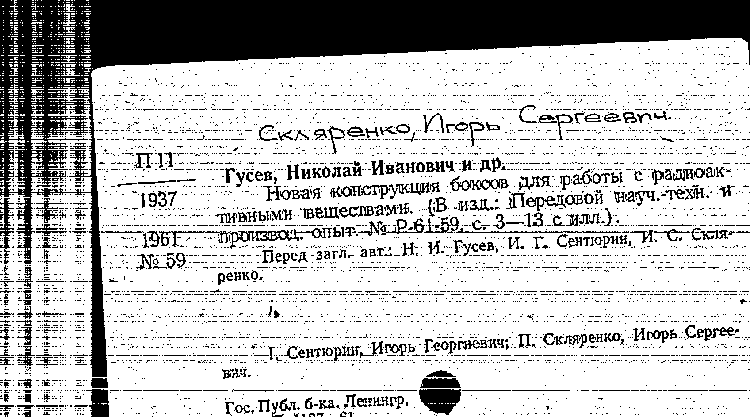 Скляренко, Игорь Сергеевич.
П 11
1937
1961
№ 59
Гусев, Николай Иванович и др.
Новая конструкция боксов для работы с радиоак-
тивными веществами. (В изд.: Передовой науч.-техн. и
производ. опыт. № Р-61-59, с. 3—13 с илл.).
Перед загл. авт.: Н. И. Гусев, И. Г. Сентюрин, И. С. Скля-
ренко.
I. Сентюрин, Игорь Георгиевич; II. Скляренко, Игорь Сергее-
вич.
Гос. Публ. б-ка. Ленингр.